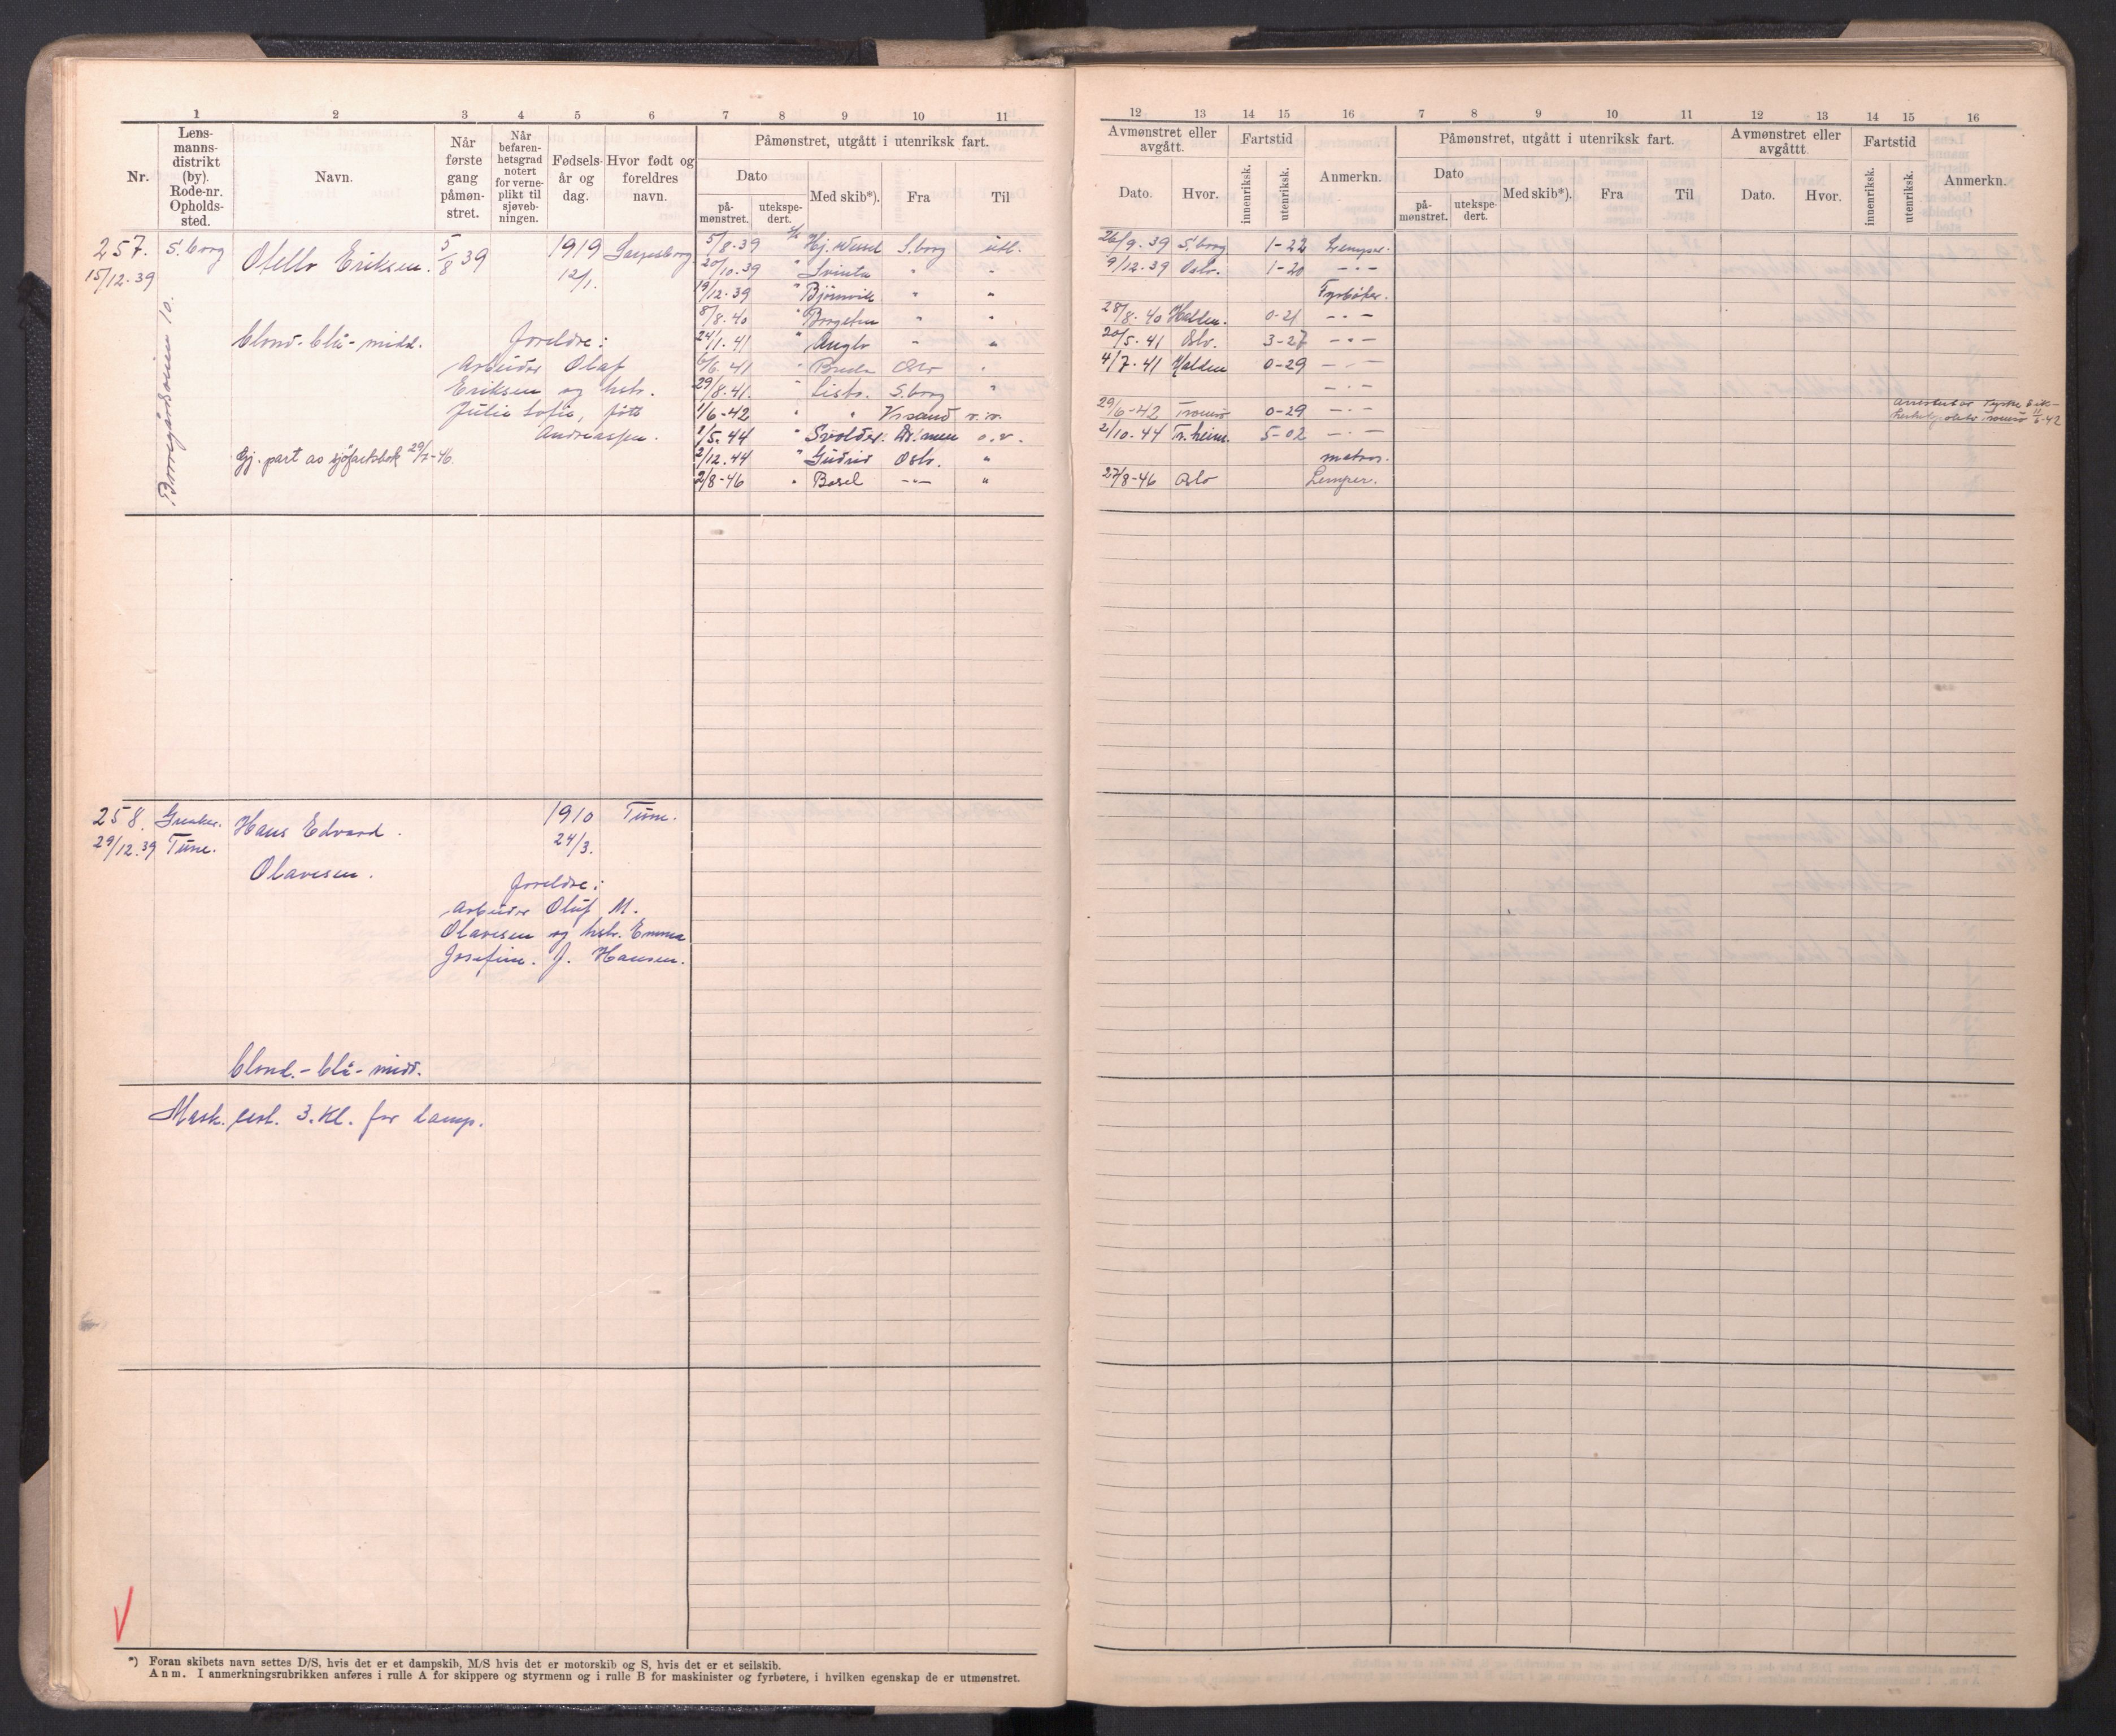 1 2 3 4 5 6 7 8 9 10 11
Nr.
Lens-
manns-
distrikt
(by).
Rode-nr.
Opholds-
sted.
Navn.
Når
første
gang
påmøn-
stret.
Når
befaren-
hetsgrad
notert
for verne-
plikt til
sjøveb-
ningen.
Fødsels-
år og
dag.
Hvor født og
foreldres
navn.
Påmønstret, utgått i utenriksk fart.
Dato
på-
mønstret.
utekspe-
dert.
Med skib*).
Fra
Til
12 13 14 15 16 7 8 9 10 11 12 13 14 15 16
Avmønstret eller
avgått.
Dato.
Hvor.
Fartstid
innenriksk.
utenriksk.
Anmerkn.
Påmønstret, utgått i utenriksk fart.
Dato
på-
mønstret.
utekspe-
dert.
Med skib*).
Fra
Til
Avmønstret eller
avgåttt
Dato.
Hvor.
Fartstid
innenriksk.
utenriksk.
Anmerkn.
257. S.borg Otello Eriksen. 5/8 39 1919 Sarpsborg
15/12.39 12/1.
Borregårdsveien 10.
blond - blå - midd.
foreldre:
Arbeider Olaf
Eriksen og hstr.
Julie Sofie, født
Andreassen.
Gj. part av sjøfartsbok 29/7-46.
5/8.39 D/S Hj. Wessel S.borg utl. 26/9.39 S.borg 1-22 Lemper.
20/10.39 " Svinta " " 9/12.39 Oslo. 1-20 -"-
19/12.39 " Bjørnvik " " Fyrbøter.
8/8.40 " Borgsten " " 28/8.40 Halden. 0-21 -"-
24/1.41 " Anglo " " 20/5.41 Oslo. 3-27 -"-
6/6.41 " Breda Oslo " 4/7.41 Halden 0-29 -"-
29/8.41. " Lisbr. S.borg " -"-
1/6-42 " " Kr.sand n.n. 29/6-42 Tromsø 0-29 -"-
Tromsø
1/5.44 " Svolder. Dr.men o.v. 2/10.44 Tr.heim. 5-02 -"-
2/12.44 " Gudrid Oslo. " matros.
2/8-46 " Borel -"- " 27/8-46 Oslo Lemper.
258. Greaker. Hans Edvard 1910 Tune.
29/12.39 Tune. 24/3.
Olavesen.
foreldre:
Arbeider Oluf M.
Olavesen og hstr. Emma
Josefine. J. Hansen.
blond. - blå - midd.
Mask. cert. 3. Kl. for damp.
*) Foran skibets navn settes D/S, hvis det er et dampskib, M/S hvis det er motorskib og S, hvis det er et seilskib.
Anm. I anmerkningsrubrikken anføres i rulle A for skippere og styrmenn og i rulle B for maskinister og fyrbøtere, i hvilken egenskap de er utmønstret.